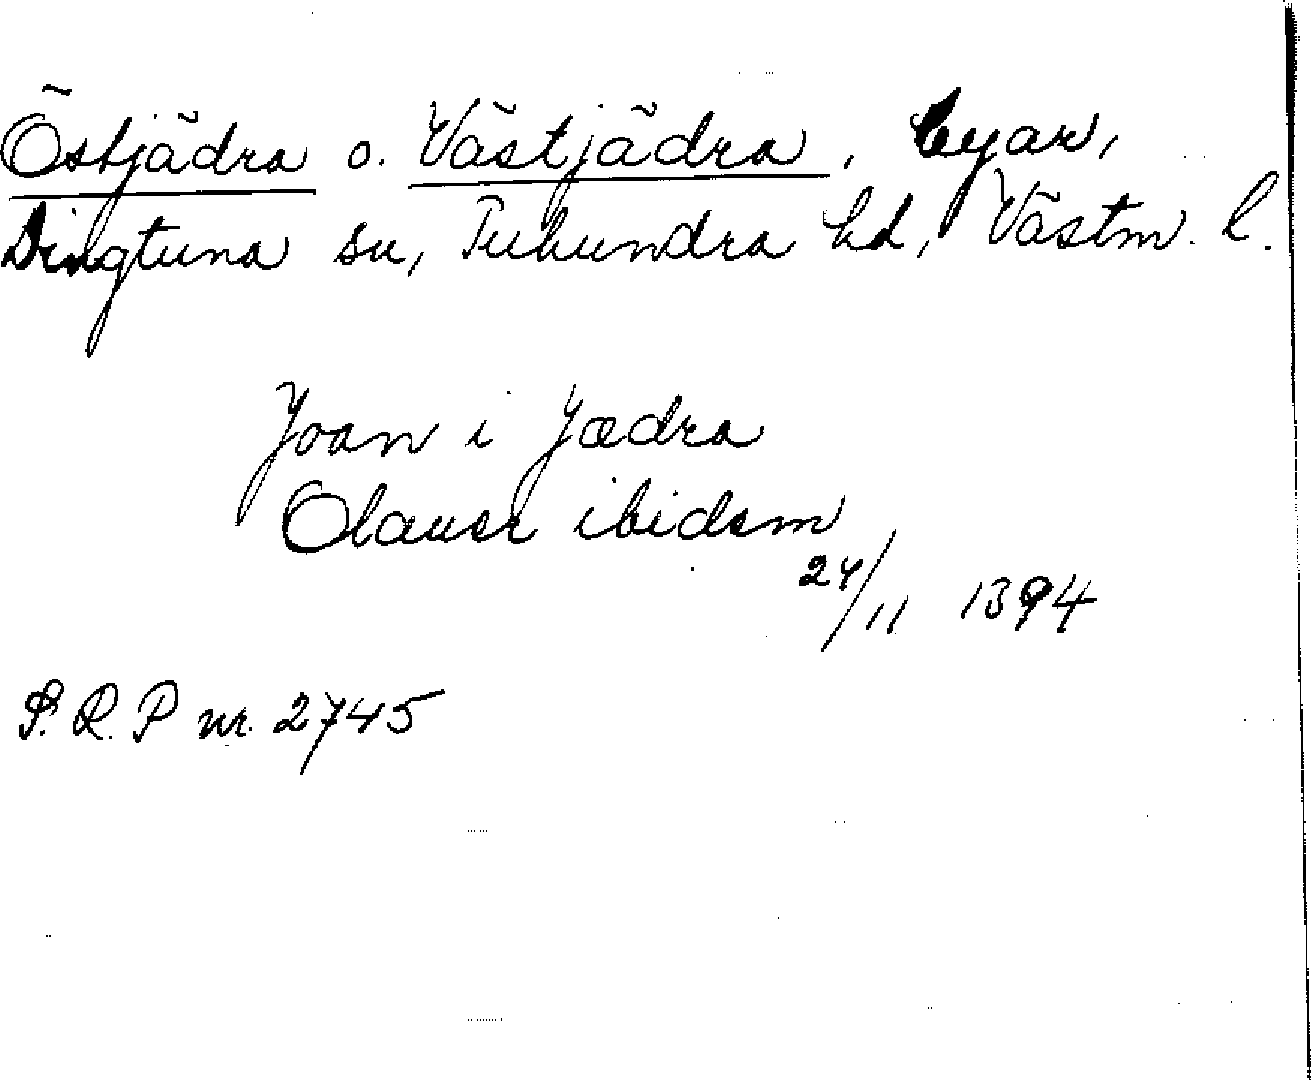 Östjädra o. Västjädra, byar,
Dingtuna sn, Tuhundra hd, Västm. l.
Joan i Jædra
Olauer ibidem
24/11 1394
S.R.P nr. 2745